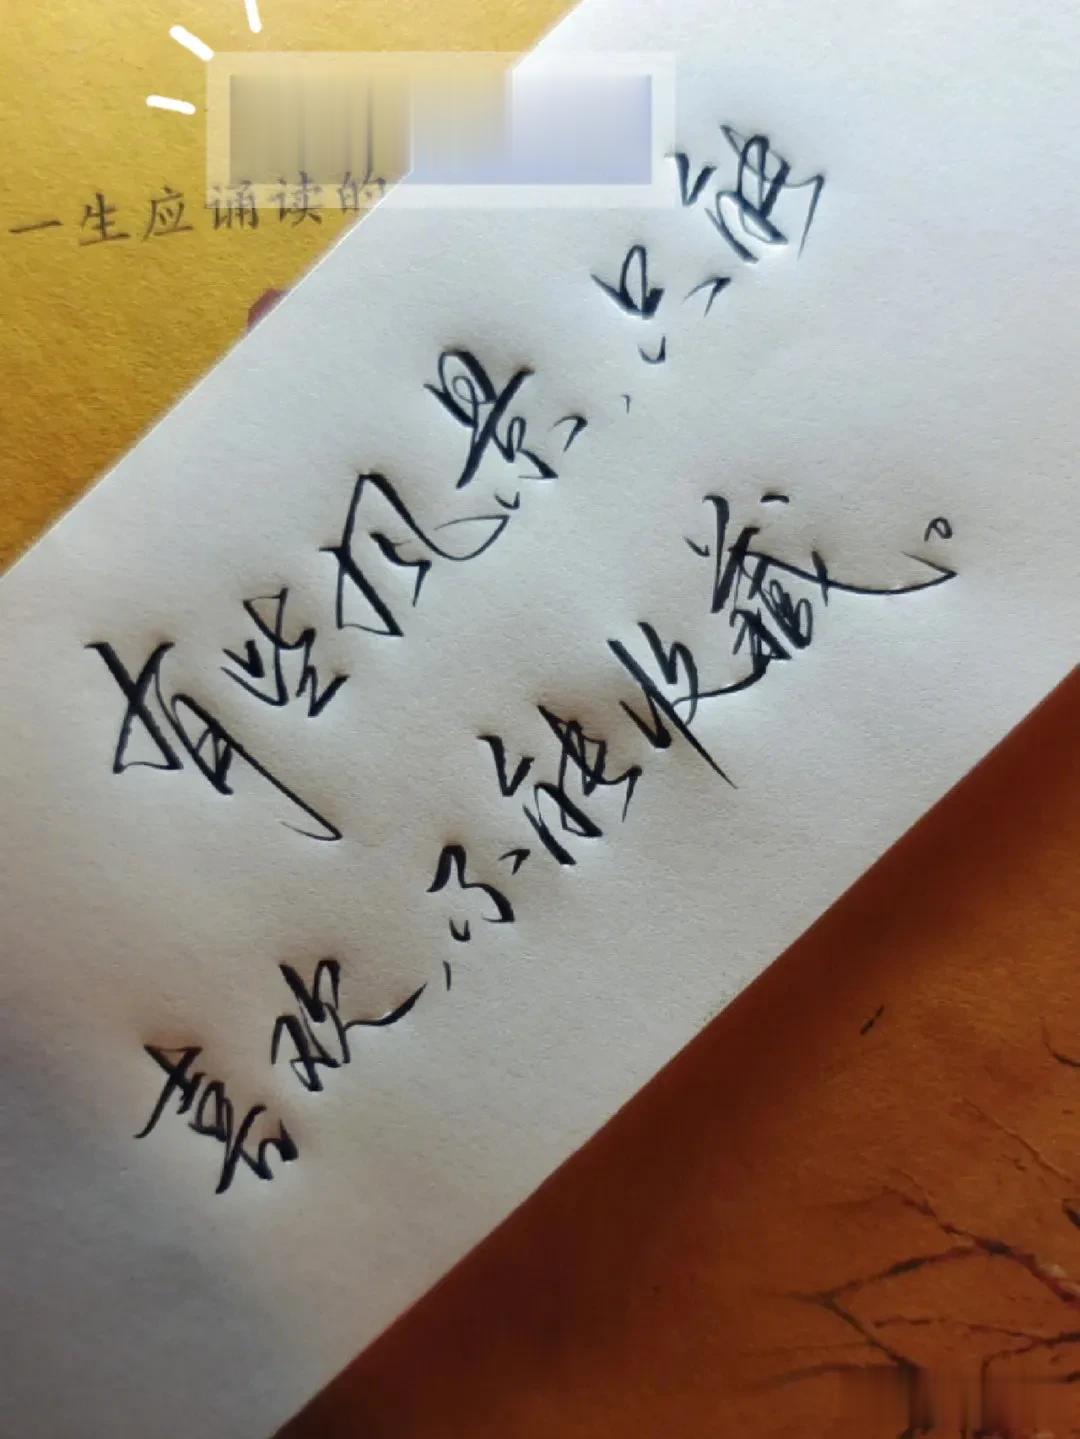 一生应诵读的
有些风景只能
喜欢不能收藏。